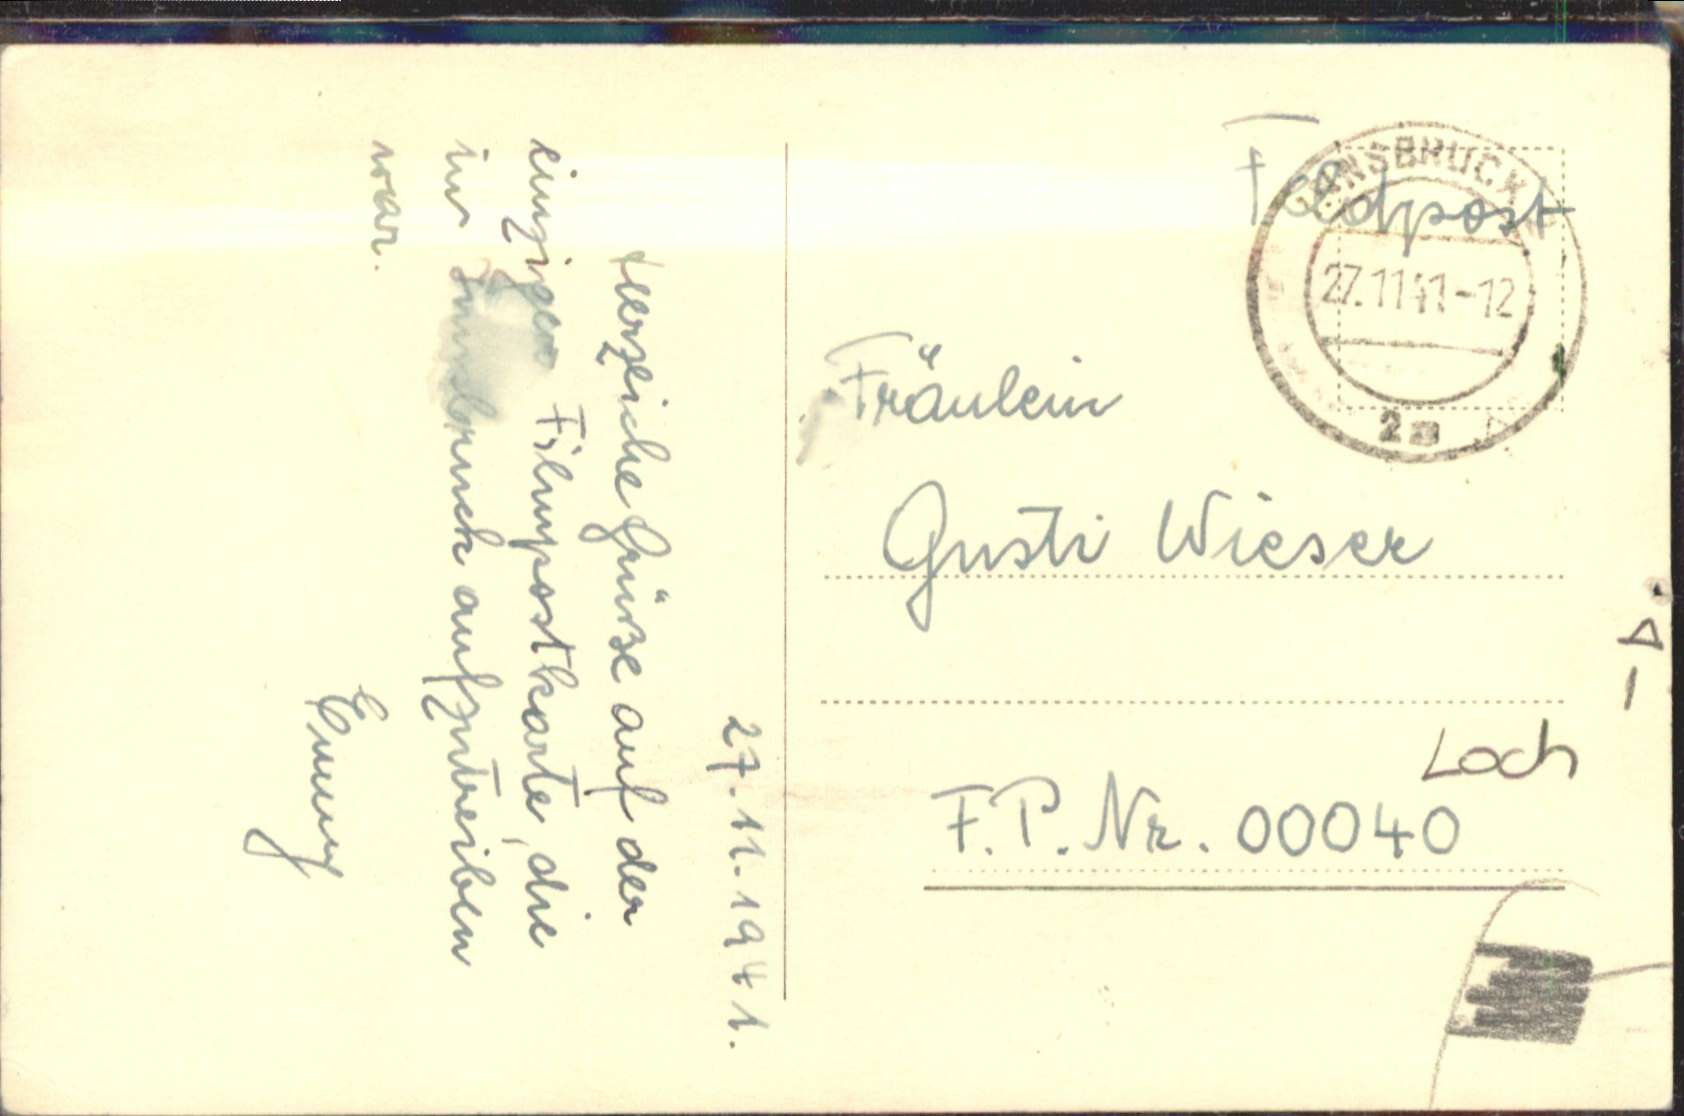 27. 11. 1941.
Herzliche Grüße auf der
einzigen Filmpostkarte, die
in Innsbruck aufzutreiben
war.
Emmy
Feldpost
INNSBRUCK
27.11.41-12
2
Fräulein
Gusti Wieser
Loch
F.P. Nr. 00040